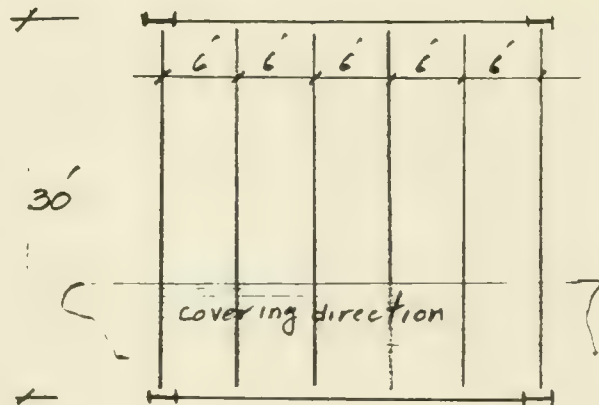 6' 6' 6' 6' 6'
30'
covering direction